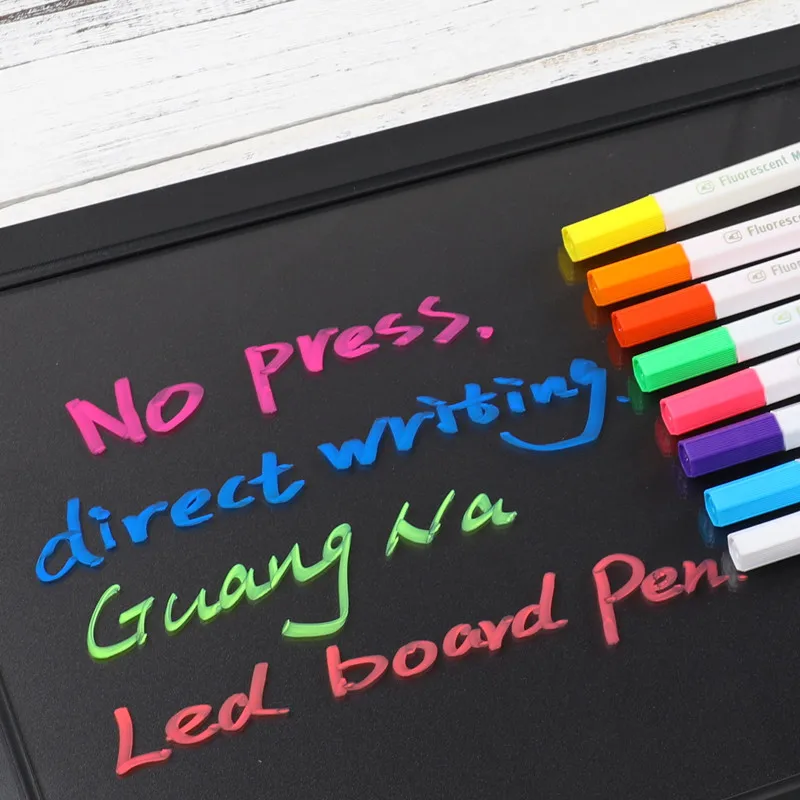 No press.
direct writing.
Guang Na
Led board Pen.
Fluorescent
Fluoresc
Fluo